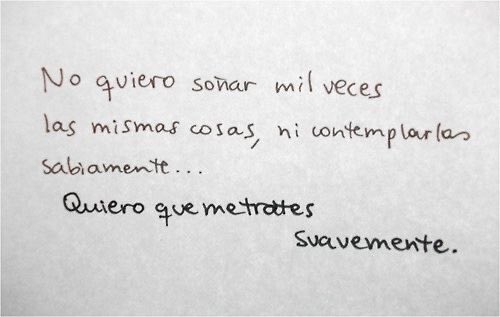 No quiero soñar mil veces
las mismas cosas, ni contemplarlas
sabiamente...
Quiero que me trates
suavemente.